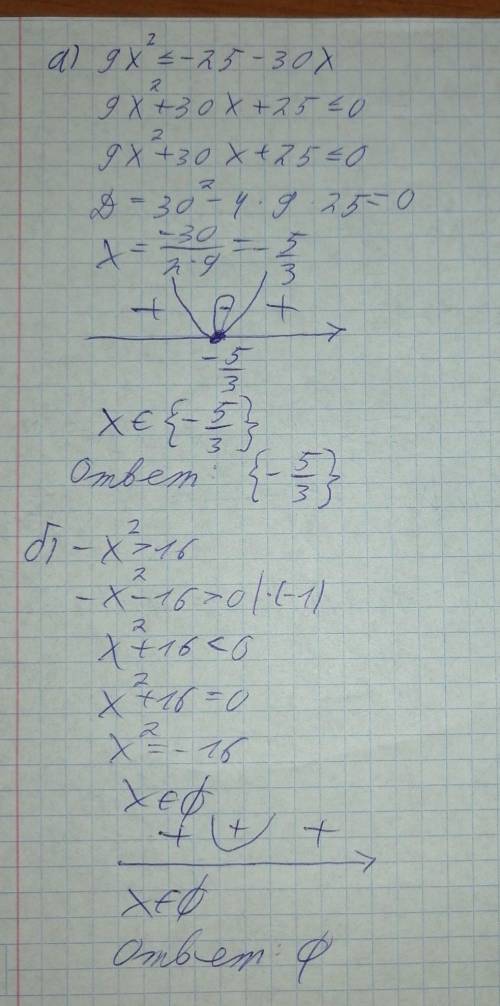 а) 9x² ≤ -25 - 30x
9x² + 30x + 25 ≤ 0
9x² + 30x + 25 ≤ 0
Д = 30² - 4 · 9 · 25 = 0
x = -30/(2·9) = -5/3
+ - +
-5/3
x ∈ {-5/3}
Ответ: {-5/3}
б) -x² > 16
-x² - 16 > 0 | · (-1)
x² + 16 < 0
x² + 16 = 0
x² = -16
x ∈ ∅
+ + +
x ∈ ∅
Ответ: ∅